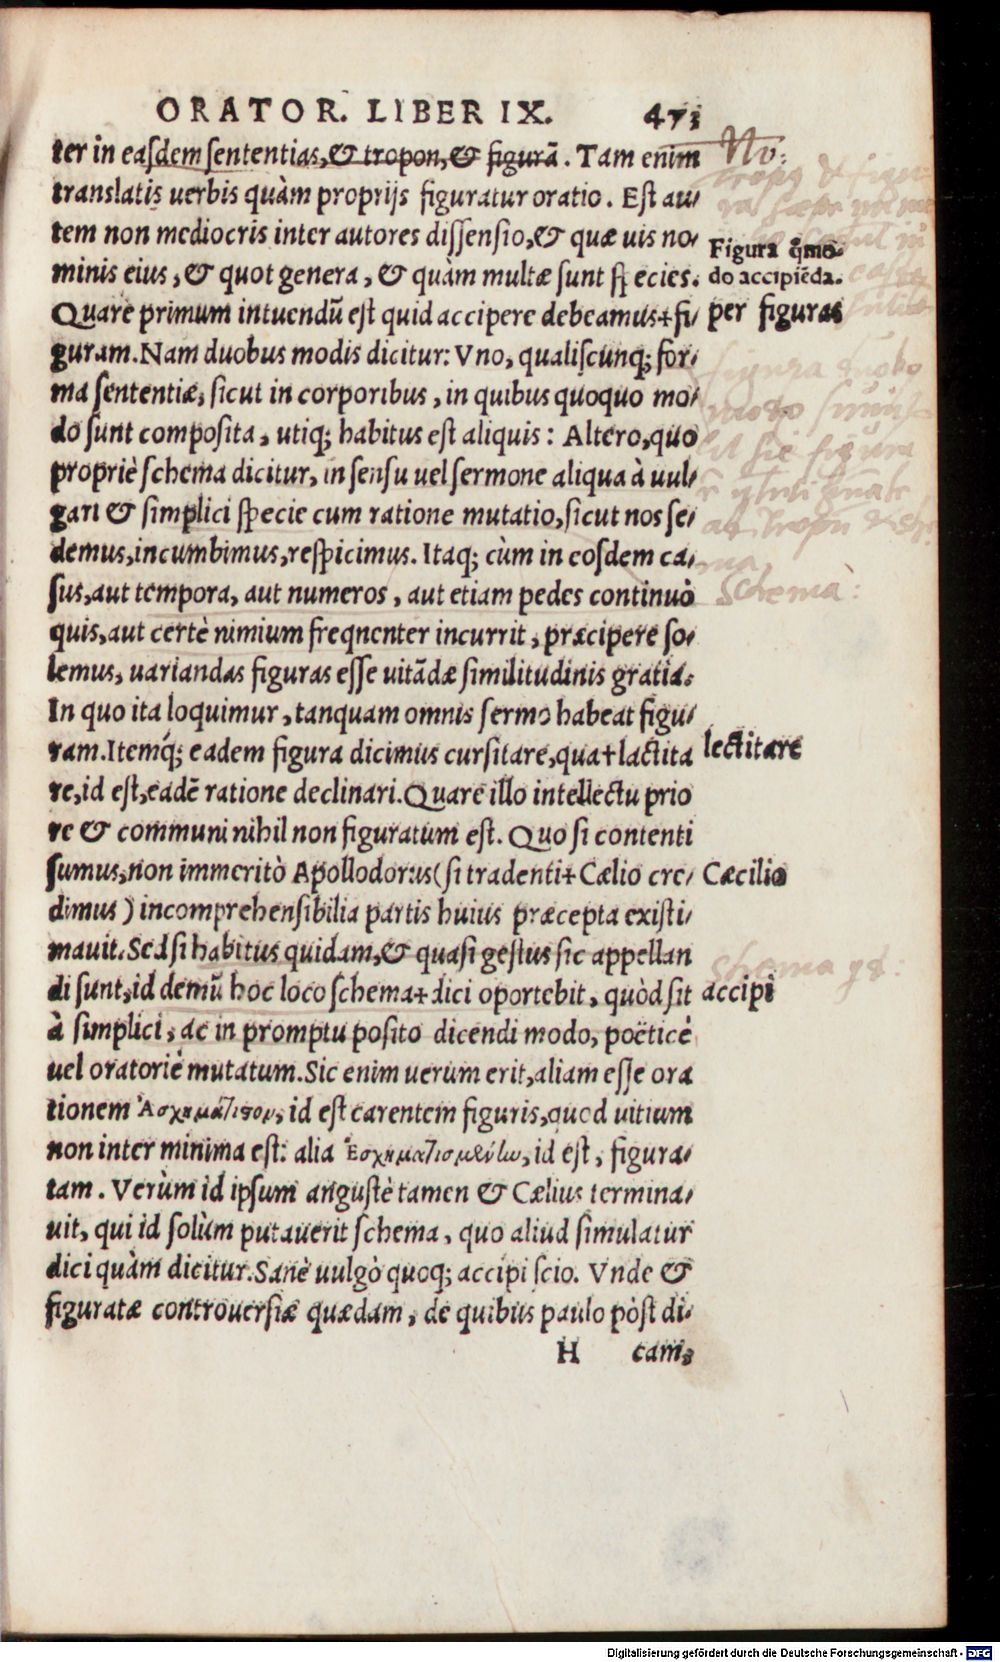 ORATOR. LIBER IX. 473
ter in easdem sententias, & tropon, & figurā. Tam enim
translatis uerbis quàm proprijs figuratur oratio. Est au/
tem non mediocris inter autores dissensio, & quæ uis no/
minis eius, & quot genera, & quàm multæ sunt species.
Figura qmō-
do accipiēda.
Quare primum intuendū est quid accipere debeamus+fi/
per figuras
guram. Nam duobus modis dicitur: Vno, qualiscunq; for/
ma sententiæ, sicut in corporibus, in quibus quoquo mo/
do sunt composita, utiq; habitus est aliquis: Altero, quo
propriè schema dicitur, in sensu uel sermone aliqua à uul/
gari & simplici specie cum ratione mutatio, sicut nos se/
demus, incumbimus, respicimus. Itaq; cùm in eosdem ca/
sus, aut tempora, aut numeros, aut etiam pedes continuò
Schema:
quis, aut certè nimium freqnenter incurrit, præcipere so/
lemus, uariandas figuras esse uitādæ similitudinis gratia.
In quo ita loquimur, tanquam omnis sermo habeat figu/
ram. Itemq́; eadem figura dicimus cursitare, qua+lactita
lectitare
re, id est, eadē ratione declinari. Quare illo intellectu prio
re & communi nihil non figuratum est. Quo si contenti
sumus, non immeritò Apollodorus (si tradenti+Cælio cre/
Cæcilio
dimus) incomprehensibilia partis huius præcepta existi/
mauit. Sed si habitus quidam, & quasi gestus sic appellan
di sunt, id demū hoc loco schema+dici oportebit, quòd sit
accipi
à simplici, ac in promptu posito dicendi modo, poëticè
uel oratoriè mutatum. Sic enim uerum erit, aliam esse ora
tionem Ἀσχημάτισον, id est carentem figuris, quod uitium
non inter minima est: alia Ἐσχηματισμένω, id est, figura/
tam. Verùm id ipsum angustè tamen & Cælius termina/
uit, qui id solùm putauerit schema, quo aliud simulatur
dici quàm dicitur. Sanè uulgò quoq; accipi scio. Vnde &
figuratæ controuersiæ quædam, de quibus paulo pòst di/
H cam;
Digitalisierung gefördert durch die Deutsche Forschungsgemeinschaft - DFG